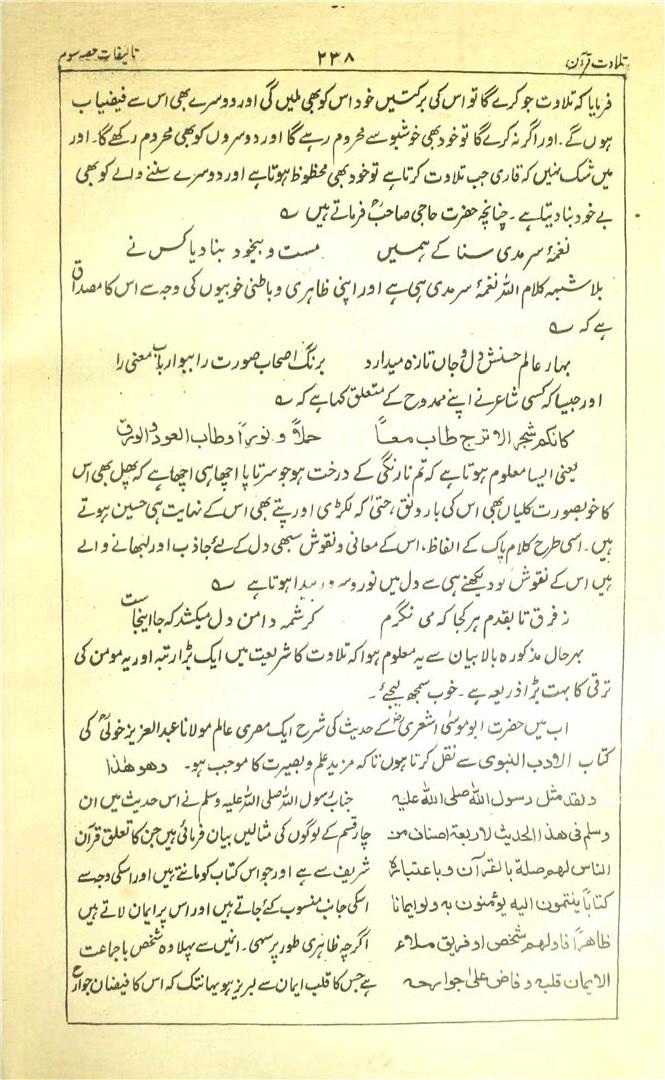 تلاوت قرآن ۲۳۸ تالیفات حصہ سوم
فرمایا کہ تلاوت جو کرے گا تو اس کی برکتیں خود اس کو بھی ملیں گی اور دوسرے بھی اس سے فیضیاب
ہوں گے۔ اور اگر نہ کرے گا تو خود بھی خوشبو سے محروم رہے گا اور دوسروں کو بھی محروم رکھے گا۔ اور
میں شک نہیں کہ قاری جب تلاوت کرتا ہے تو خود بھی محظوظ ہوتا ہے اور دوسرے سننے والے کو بھی
بے خود بنا دیتا ہے۔ چنانچہ حضرت حاجی صاحبؒ فرماتے ہیں ؎
نغمۂ سرمدی سنا کے ہمیں مست و بیخود بنا دیا کس نے
بلاشبہ کلام اللہ نغمۂ سرمدی ہی ہے اور اپنی ظاہری و باطنی خوبیوں کی وجہ سے اس کا مصداق
ہے کہ ؎
بہار عالم حسنش دل و جاں تازہ میدارد برنگ اصحاب صورت را ببو ارباب معنی را
اور جیسا کہ کسی شاعر نے اپنے ممدوح کے متعلق کہا ہے کہ ؎
کانکم شجر الاترج طاب معاً حملاً و نوراً و طاب العود والورق
یعنی ایسا معلوم ہوتا ہے کہ تم نارنگی کے درخت ہو جو سرتاپا اچھا ہی اچھا ہے کہ پھل بھی اس
کا خوبصورت کلیاں بھی اس کی بارونق، حتیٰ کہ لکڑی اور پتے بھی اس کے نہایت ہی حسین ہوتے
ہیں۔ اسی طرح کلام پاک کے الفاظ، اس کے معانی و نقوش سبھی دل کے لئے جاذب اور لبھانے والے
ہیں اس کے نقوش کو دیکھنے ہی سے دل میں نور و پیدا ہوتا ہے ؎
ز فرق تا بقدم ہر کجا کہ می نگرم کرشمہ دامن دل میکشد کہ جا اینجاست
بہرحال مذکورہ بالا بیان سے یہ معلوم ہوا کہ تلاوت کا شریعت میں ایک بڑا رتبہ اور یہ مومن کی
ترقی کا بہت بڑا ذریعہ ہے۔ خوب سمجھ لیجئے۔
اب میں حضرت ابو موسیٰ اشعریؓ کے حدیث کی شرح ایک مصری عالم مولانا عبدالعزیز خولیؒ کی
کتاب الادب النبوی سے نقل کرتا ہوں تاکہ مزید علم و بصیرت کا موجب ہو۔ وھو ھذا
ولقد مثل رسول اللہ صلی اللہ علیہ جناب رسول اللہ صلی اللہ علیہ وسلم نے اس حدیث میں ان
وسلم فی ھذا الحدیث لاربعۃ اصناف من چار قسم کے لوگوں کی مثالیں بیان فرمائی ہیں جن کا تعلق قرآن
الناس لھم صلۃ بالقرآن و باعتبارہ شریف سے ہے اور جو اس کتاب کو مانتے ہیں اور اسکی وجہ سے
کتاباً ینتمون الیہ یؤمنون بہ ولو ایمانا اسکی جانب منسوب کئے جاتے ہیں اور اس پر ایمان لاتے ہیں
ظاھراً فاولھم شخص او فریق ملاء اگرچہ ظاہری طور پر سہی۔ انمیں سے پہلا وہ شخص یا جماعت
الایمان قلبہ و فاض علیٰ جوارحہ ہے جس کا قلب ایمان سے لبریز ہو یہانتک کہ اس کا فیضان جوارح